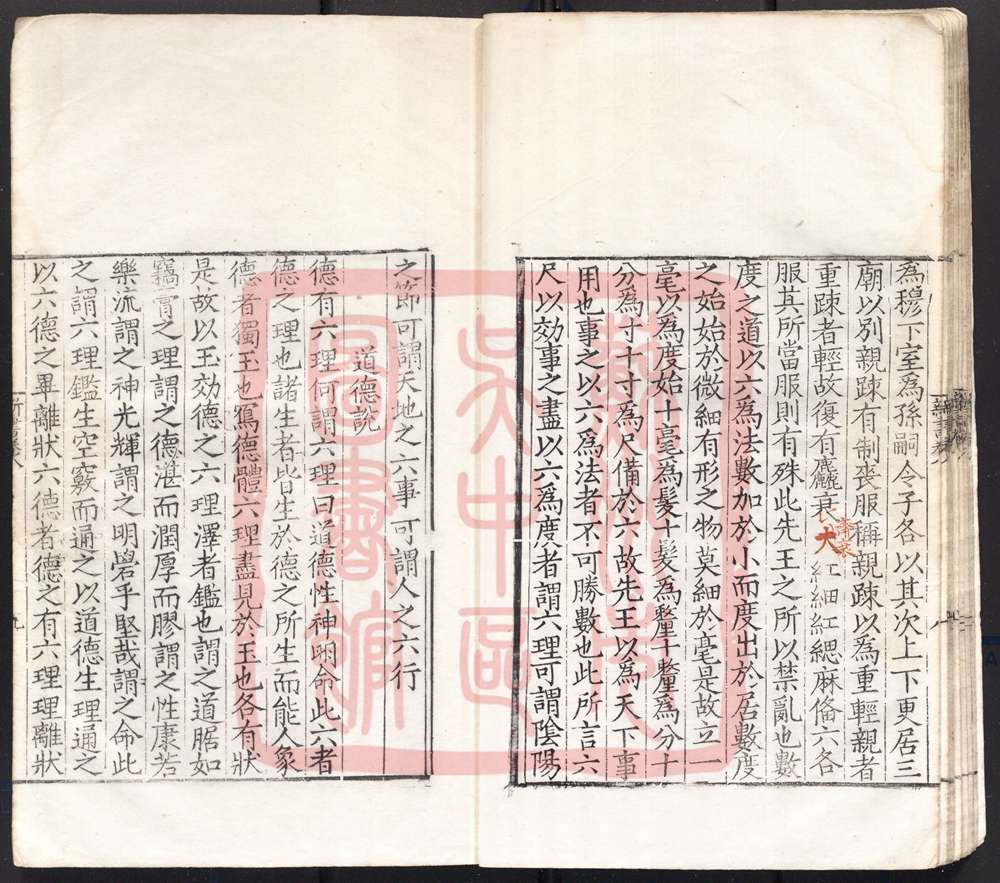 為穆下室為孫嗣令子各以其次上下更居三
廟以別親踈有制喪服稱親踈以為重輕親者
重踈者輕故復有麤衰大紅細紅緦麻備六各
齊衰
服其所當服則有殊此先王之所以禁亂也數
度之道以六為法數加於小而度出於居數度
之始始於微細有形之物莫細於毫是故立一
毫以為度始十毫為髮十髮為氂十氂為分十
分為寸十寸為尺備於六故先王以為天下事
用也事之以六為法者不可勝數也此所言六
尺以効事之盡以六為度者謂六理可謂陰陽
之節可謂天地之六事可謂人之六行
道德說
德有六理何謂六理曰道德性神明命此六者
德之理也諸生者皆生於德之所生而能人象
德者獨玉也寫德體六理盡見於玉也各有狀
是故以玉効德之六理澤者鑑也謂之道腒如
竊膏之理謂之德湛而潤厚而膠謂之性康若
樂流謂之神光輝謂之明礐乎堅哉謂之命此
之謂六理鑑生空竅而通之以道德生理通之
以六德之畢離狀六德者德之有六理理離狀
新書卷八
九
蘇州市吳中區圖書館